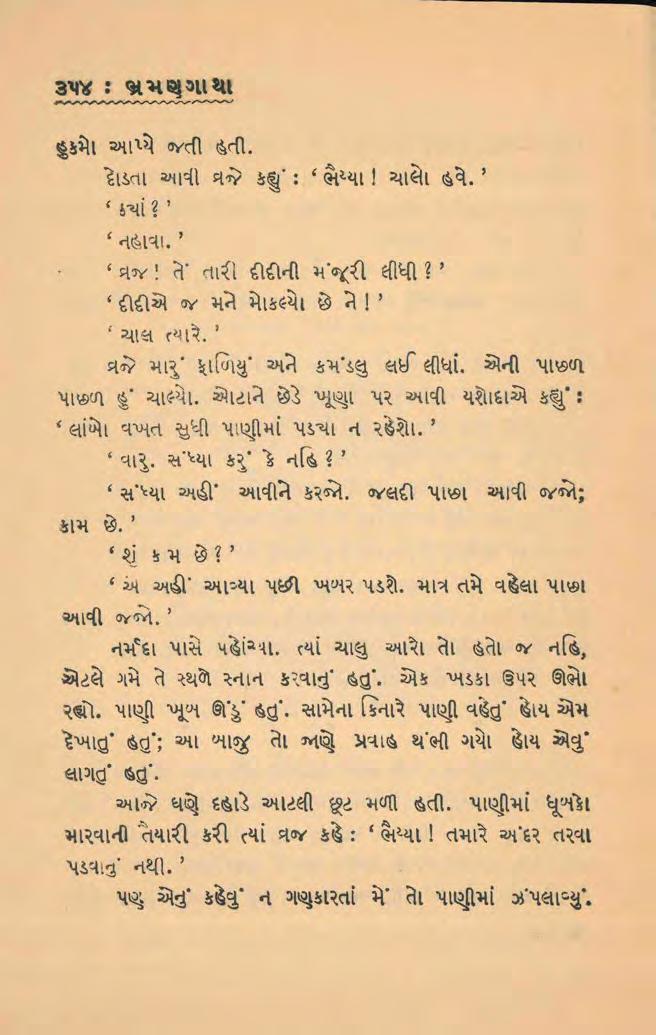 ૩૫૪ : ભ્રમણગાથા
હુકમો આપ્યે જતી હતી.
દોડતા આવી વ્રજે કહ્યું : ‘ ભૈય્યા ! ચાલો હવે. ’
‘ ક્યાં ? ’
‘ નહાવા. ’
‘ વ્રજ ! તેં તારી દીદીની મંજૂરી લીધી ? ’
‘ દીદીએ જ મને મોકલ્યો છે ને ! ’
‘ ચાલ ત્યારે. ’
વ્રજે મારું ફાળિયું અને કમંડલુ લઈ લીધાં. એની પાછળ
પાછળ હું ચાલ્યો. ઓટાને છેડે ખૂણા પર આવી યશોદાએ કહ્યું :
‘ લાંબો વખત સુધી પાણીમાં પડ્યા ન રહેશો. ’
‘ વારુ. સંધ્યા કરું કે નહિ ? ’
‘ સંધ્યા અહીં આવીને કરજો. જલદી પાછા આવી જજો;
કામ છે. ’
‘ શું કમ છે ? ’
‘ અ અહીં આવ્યા પછી ખબર પડશે. માત્ર તમે વહેલા પાછા
આવી જજો. ’
નર્મદા પાસે પહોંચ્યા. ત્યાં ચાલુ આરો તો હતો જ નહિ,
એટલે ગમે તે સ્થળે સ્નાન કરવાનું હતું. એક ખડકા ઉપર ઊભો
રહ્યો. પાણી ખૂબ ઊંડું હતું. સામેના કિનારે પાણી વહેતું હોય એમ
દેખાતું હતું; આ બાજુ તો જાણે પ્રવાહ થંભી ગયો હોય એવું
લાગતું હતું.
આજે ઘણે દહાડે આટલી છૂટ મળી હતી. પાણીમાં ધૂબકો
મારવાની તૈયારી કરી ત્યાં વ્રજ કહે : ‘ ભૈય્યા ! તમારે અંદર તરવા
પડવાનું નથી. ’
પણ એનું કહેવું ન ગણકારતાં મેં તો પાણીમાં ઝંપલાવ્યું.